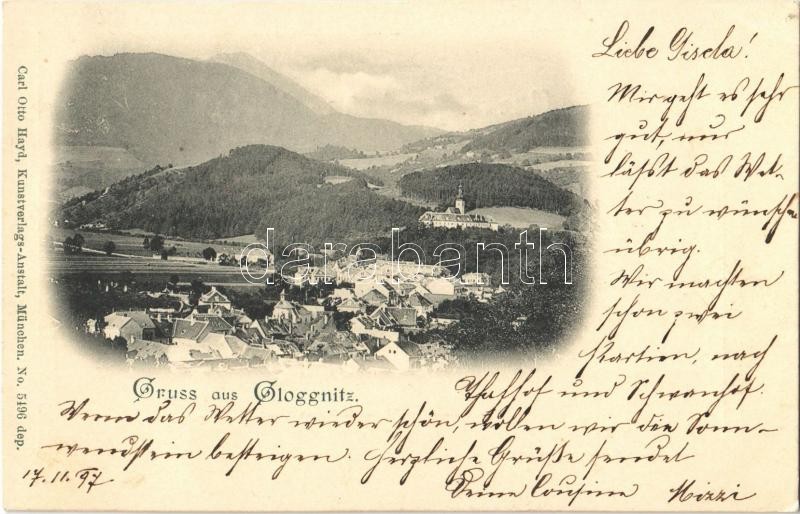 Liebe Gisela!
Mir geht es sehr
gut, nur
läßt das Wet-
ter zu wünschen
übrig.
Wir machten
schon zwei
Partien, nach
Thalhof und Schwanhof.
Wenn das Wetter wieder schön, wollen wir den Sonn-
wendstein besteigen. Herzliche Grüße sendet
Deine Cousine Mizzi
17.11.97.
Gruss aus Gloggnitz.
Carl Otto Hayd, Kunstverlags-Anstalt, München. No. 5496 dep.
darabanth